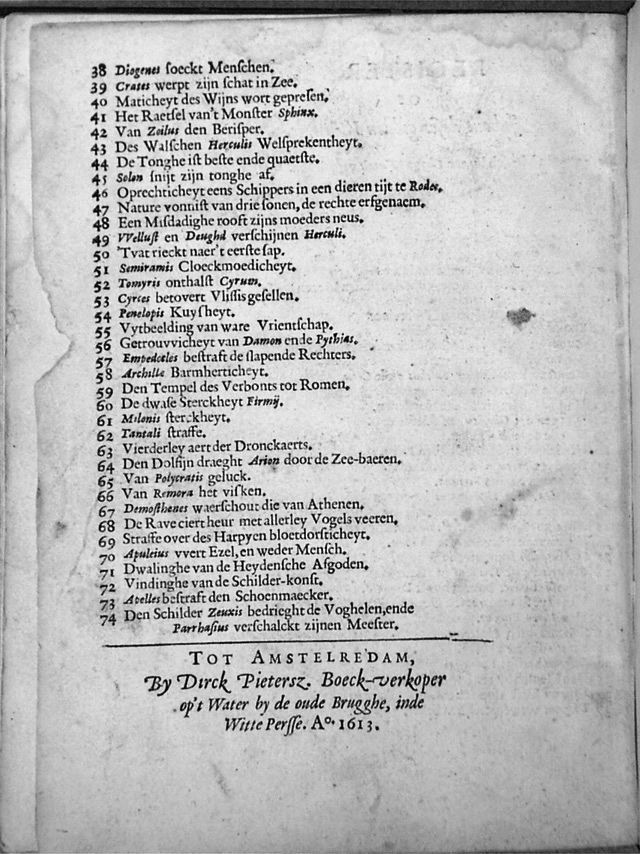 38 Diogenes soeckt Menschen.
39 Crates werpt zijn schat in Zee.
40 Maticheyt des Wijns wort gepresen.
41 Het Raetsel van't Monster Sphinx.
42 Van Zoilus den Berisper.
43 Des Walschen Herculis Welsprekentheyt.
44 De Tonghe ist beste ende quaetste.
45 Solon snijt zijn tonghe af.
46 Oprechticheyt eens Schippers in een dieren tijt te Rodes.
47 Nature vonnist van drie sonen, de rechte erfgenaem.
48 Een Misdadighe rooft zijns moeders neus.
49 Wellust en Deughd verschijnen Herculi.
50 'Tvat rieckt naer't eerste sap.
51 Semiramis Cloeckmoedicheyt.
52 Tomyris onthalst Cyrum.
53 Cyrces betovert Vlissis gesellen.
54 Penelopis Kuysheyt.
55 Vytbeelding van ware Vrientschap.
56 Getrouvvicheyt van Damon ende Pythias.
57 Empedocles bestraft de slapende Rechters.
58 Archille Barmherticheyt.
59 Den Tempel des Verbonts tot Romen.
60 De dwase Sterckheyt Firmij.
61 Milonis sterckheyt.
62 Tantali straffe.
63 Vierderley aert der Dronckaerts.
64 Den Dolfijn draeght Arion door de Zee-baeren.
65 Van Polycratis geluck.
66 Van Remora het visken.
67 Demosthenes waerschout die van Athenen.
68 De Rave ciert heur met allerley Vogels veeren.
69 Straffe over des Harpyen bloetdorsticheyt.
70 Apuleius vvert Ezel, en weder Mensch.
71 Dwalinghe van de Heydensche Afgoden.
72 Vindinghe van de Schilder-konst.
73 Apelles bestraft den Schoenmaecker.
74 Den Schilder Zeuxis bedrieght de Voghelen, ende
Parrhasius verschalckt zijnen Meester.
TOT AMSTELREDAM,
By Dirck Pietersz. Boeck-verkoper
op't Water by de oude Brugghe, inde
Witte Persse. Aº. 1613.